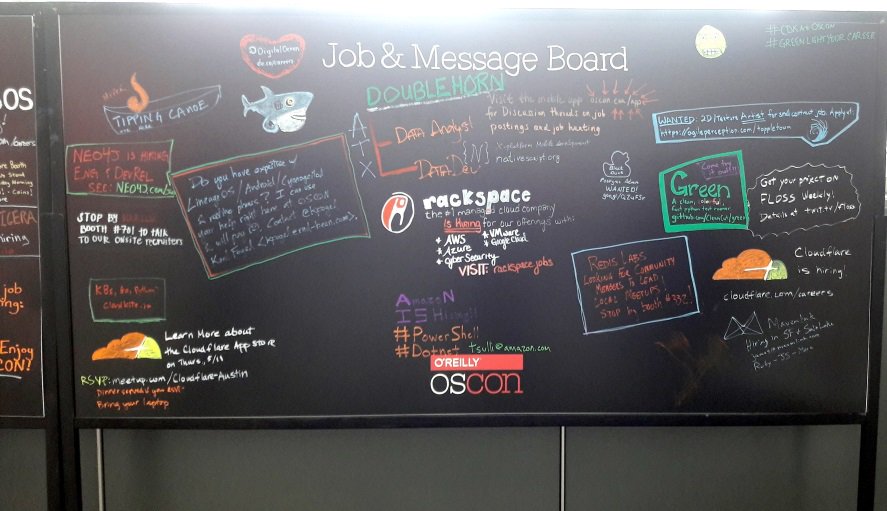 Job & Message Board
#CDKatOSCON
#GREENLIGHTYOURCAREER
DigitalOcean
do.co/careers
TIPPING CANOE
DOUBLEHORN
ATX
DATA Analyst
DATA Dev
Visit the mobile app oscon.com/app
for Discussion threads on job
postings and job hunting
{N} X-platform Mobile development
nativescript.org
WANTED: 2D/Texture Artist for small contract job. Apply at:
https://agileperception.com/toppletown
NEO4J IS HIRING
ENG & DEVREL
SEE: NEO4J.com/
Do you have expertise w/
LineageOS / Android / CyanogenMod
& real phones? I can use
your help right here at OSCON
& will pay
STOP BY
BOOTH #701 TO TALK
TO OUR ONSITE RECRUITERS
rackspace
the #1 managed cloud company
Is Hiring for our offerings with:
* AWS
* Azure
* Cyber Security
* VMware
* Google Cloud
VISIT: rackspace.jobs
WANTED!
Come try
it out!!
Green
A clean, colorful,
fast python test runner
github.com/CleanCut/green
Get your project ON
FLOSS Weekly!
Details at twit.tv/floss
REDIS LABS
LOOKING FOR COMMUNITY
MEMBERS TO LEAD
LOCAL MEETUPS!
STOP by booth #332!
Cloudflare
is hiring!
cloudflare.com/careers
Mavenlink
Hiring in SF & Salt Lake
Ruby - JS -
K8s, Go, Python
AmazoN
IS Hiring!!
#PowerShell
#Dotnet tsulli@amazon.com
O'REILLY
OSCON
Learn More about
the Cloudflare App Store
on Thurs.,
RSVP: meetup.com/Cloudflare-Austin
Dinner served if you RSVP.
Bring your laptop
job
Enjoy